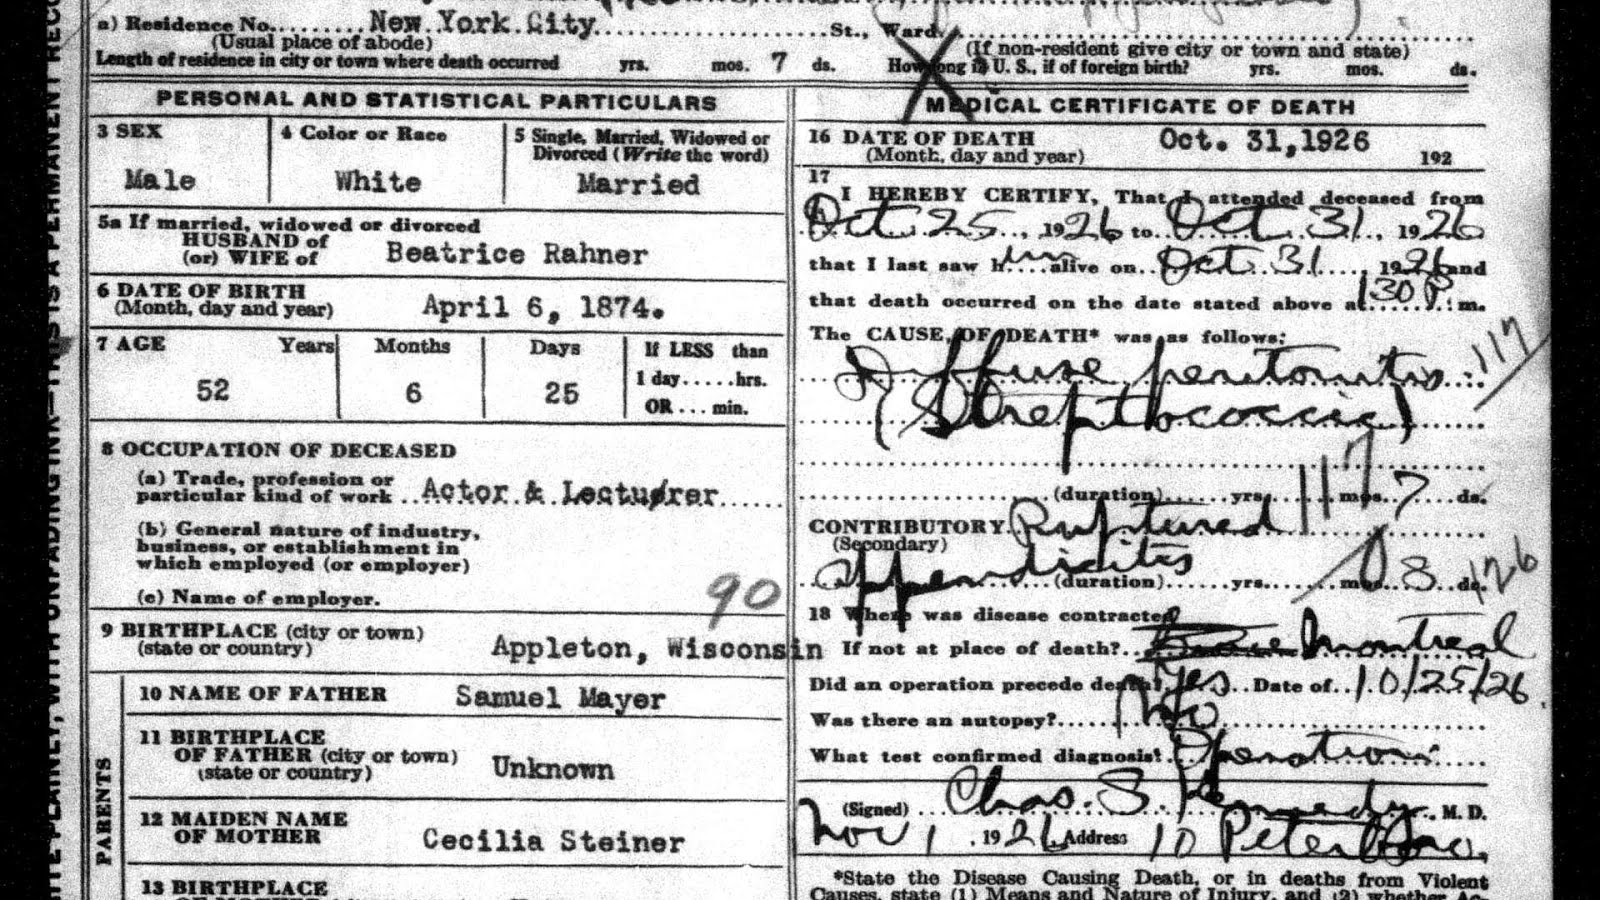 a) Residence No......... New York City .......... St., Ward,
(Usual place of abode) (If non-resident give city or town and state)
Length of residence in city or town where death occurred yrs. mos. 7 ds. How long in U. S., if of foreign birth? yrs. mos. ds.
PERSONAL AND STATISTICAL PARTICULARS
3 SEX 4 Color or Race 5 Single, Married, Widowed or
Divorced (Write the word)
Male White Married
5a If married, widowed or divorced
HUSBAND of
(or) WIFE of Beatrice Rahner
6 DATE OF BIRTH
(Month, day and year) April 6, 1874.
7 AGE Years Months Days If LESS than
1 day.....hrs.
52 6 25
OR ... min.
8 OCCUPATION OF DECEASED
(a) Trade, profession or
particular kind of work .. Actor & Lecturer
(b) General nature of industry,
business, or establishment in
which employed (or employer)
(c) Name of employer.
90
9 BIRTHPLACE (city or town)
(state or country) Appleton, Wisconsin
PARENTS
10 NAME OF FATHER Samuel Mayer
11 BIRTHPLACE
OF FATHER (city or town)
(state or country) Unknown
12 MAIDEN NAME
OF MOTHER Cecilia Steiner
13 BIRTHPLACE
MEDICAL CERTIFICATE OF DEATH
16 DATE OF DEATH Oct. 31,1926
(Month, day and year) 192
17
I HEREBY CERTIFY, That I attended deceased from
Oct 25, 1926 to Oct 31, 1926
that I last saw him alive on Oct 31, 1926 and
that death occurred on the date stated above at 130 P. m.
The CAUSE OF DEATH* was as follows:
Diffuse peritonitis 117
(Streptococcic)
117
(duration) yrs. mos. 7 ds.
CONTRIBUTORY Ruptured
(Secondary)
appendicitis (duration) yrs. mos. 8 ds. 126
18 Where was disease contracted
If not at place of death? Montreal
Did an operation precede death? Yes Date of 10/25/26
Was there an autopsy? No
What test confirmed diagnosis? Operation
(Signed) Chas. S. Kennedy M. D.
Nov 1, 1926 Address 10 Peterboro.
*State the Disease Causing Death, or in deaths from Violent
Causes, state (1) Means and Nature of Injury, and (2) whether Ac-